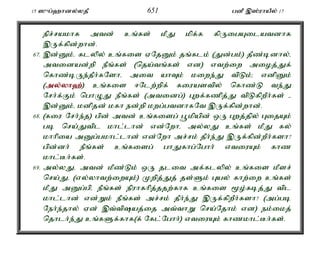 15 ஸுப்ஹானல்லதீ 651 பனீ இஸ்ராயீல் 17
நிச்சயமாக அவன் உங்கள் மீது மிக்க கிருபையுடையவனாக
இருக்கின்றான்.
67. இன்னும், கடலில் உங்களை ஏதேனும் தங்கடம் (துன்பம்) தீண்டினால்,
அவனையன்றி நீங்கள் (தெய்வங்கள் என) எவற்றை அழைத்துக்
கொண்டிருந்தீர்களோ, அவை யாவும் மறைந்து விடும்; எனினும்
(அல்லாஹ்) உங்களை ஈடேற்றிக் கரையளவில் கொண்டு வந்து
சேர்க்கும் பொழுது நீங்கள் (அவனைப்) புறக்கணித்து விடுகிறீர்கள் -
இன்னும், மனிதன் மகா நன்றி மறப்பவனாகவே இருக்கின்றான்.
68. (கரை சேர்ந்த) பின் அவன் உங்களைப் பூமியின் ஒரு புறத்தில் புதையும்
படி செய்துவிட மாட்டான் என்றோ, அல்லது உங்கள் மீது கல்
மாரியை அனுப்பமாட்டான் என்றோ அச்சம் தீர்ந்து இருக்கின்றீர்களா?
பின்னர் நீங்கள் உங்களைப் பாதுகாப்போர் எவரையும் காண
மாட்டீர்கள்.
69. அல்லது, அவன் மீண்டும் ஒரு தடவை அக்கடலில் உங்களை மீளச்
செய்து, (எல்லாவற்றையும்) முறித்துத் தள்ளும் புயல் காற்றை உங்கள்
மீது அனுப்பி, நீங்கள் நிராகரித்ததற்காக உங்களை மூழ்கடித்து விட
மாட்டான் என்றும் நீங்கள் அச்சம் தீர்ந்து இருக்கிறீர்களா? (அப்படி
நேர்ந்தால் ஏன் இவ்விஷயத்தை அவ்வாறு செய்தோம் என) நம்மைத்
தொடர்ந்து உங்களுக்காக(க் கேட்போர்) எவரையும் காணமாட்டீர்கள்.